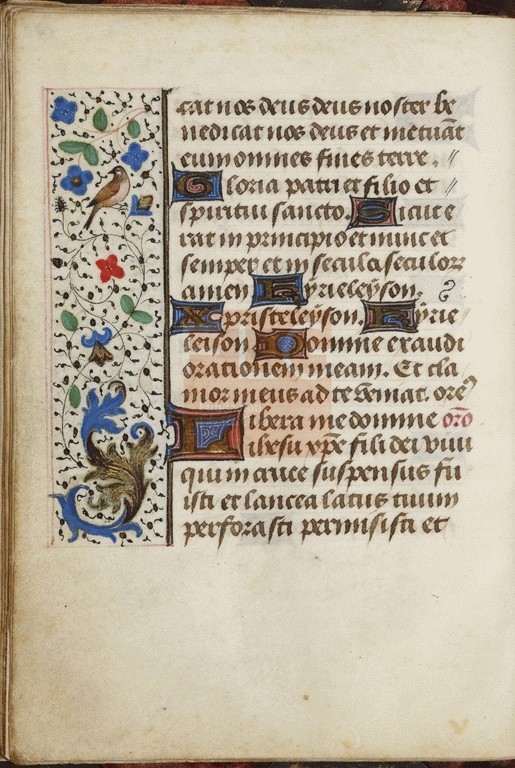 cat nos deus deus noster be
nedicat nos deus et metuāt
eum omnes fines terre. //
Gloria patri et filio et //
spiritui sancto. Sicut e
rat in principio et nunc et
semper et in secula seculorz
amen Kyrieleÿson.
Xpristeleÿson. Kÿrie
leison Domine exaudi
orationem meam. Et cla
mor meus ad te veniat. ore᷒
Libera me domine orō
ihesu xp̄e fili dei viui
qui in cruce suspensus fu
isti et lancea latus tuum
perforasti permisisti et